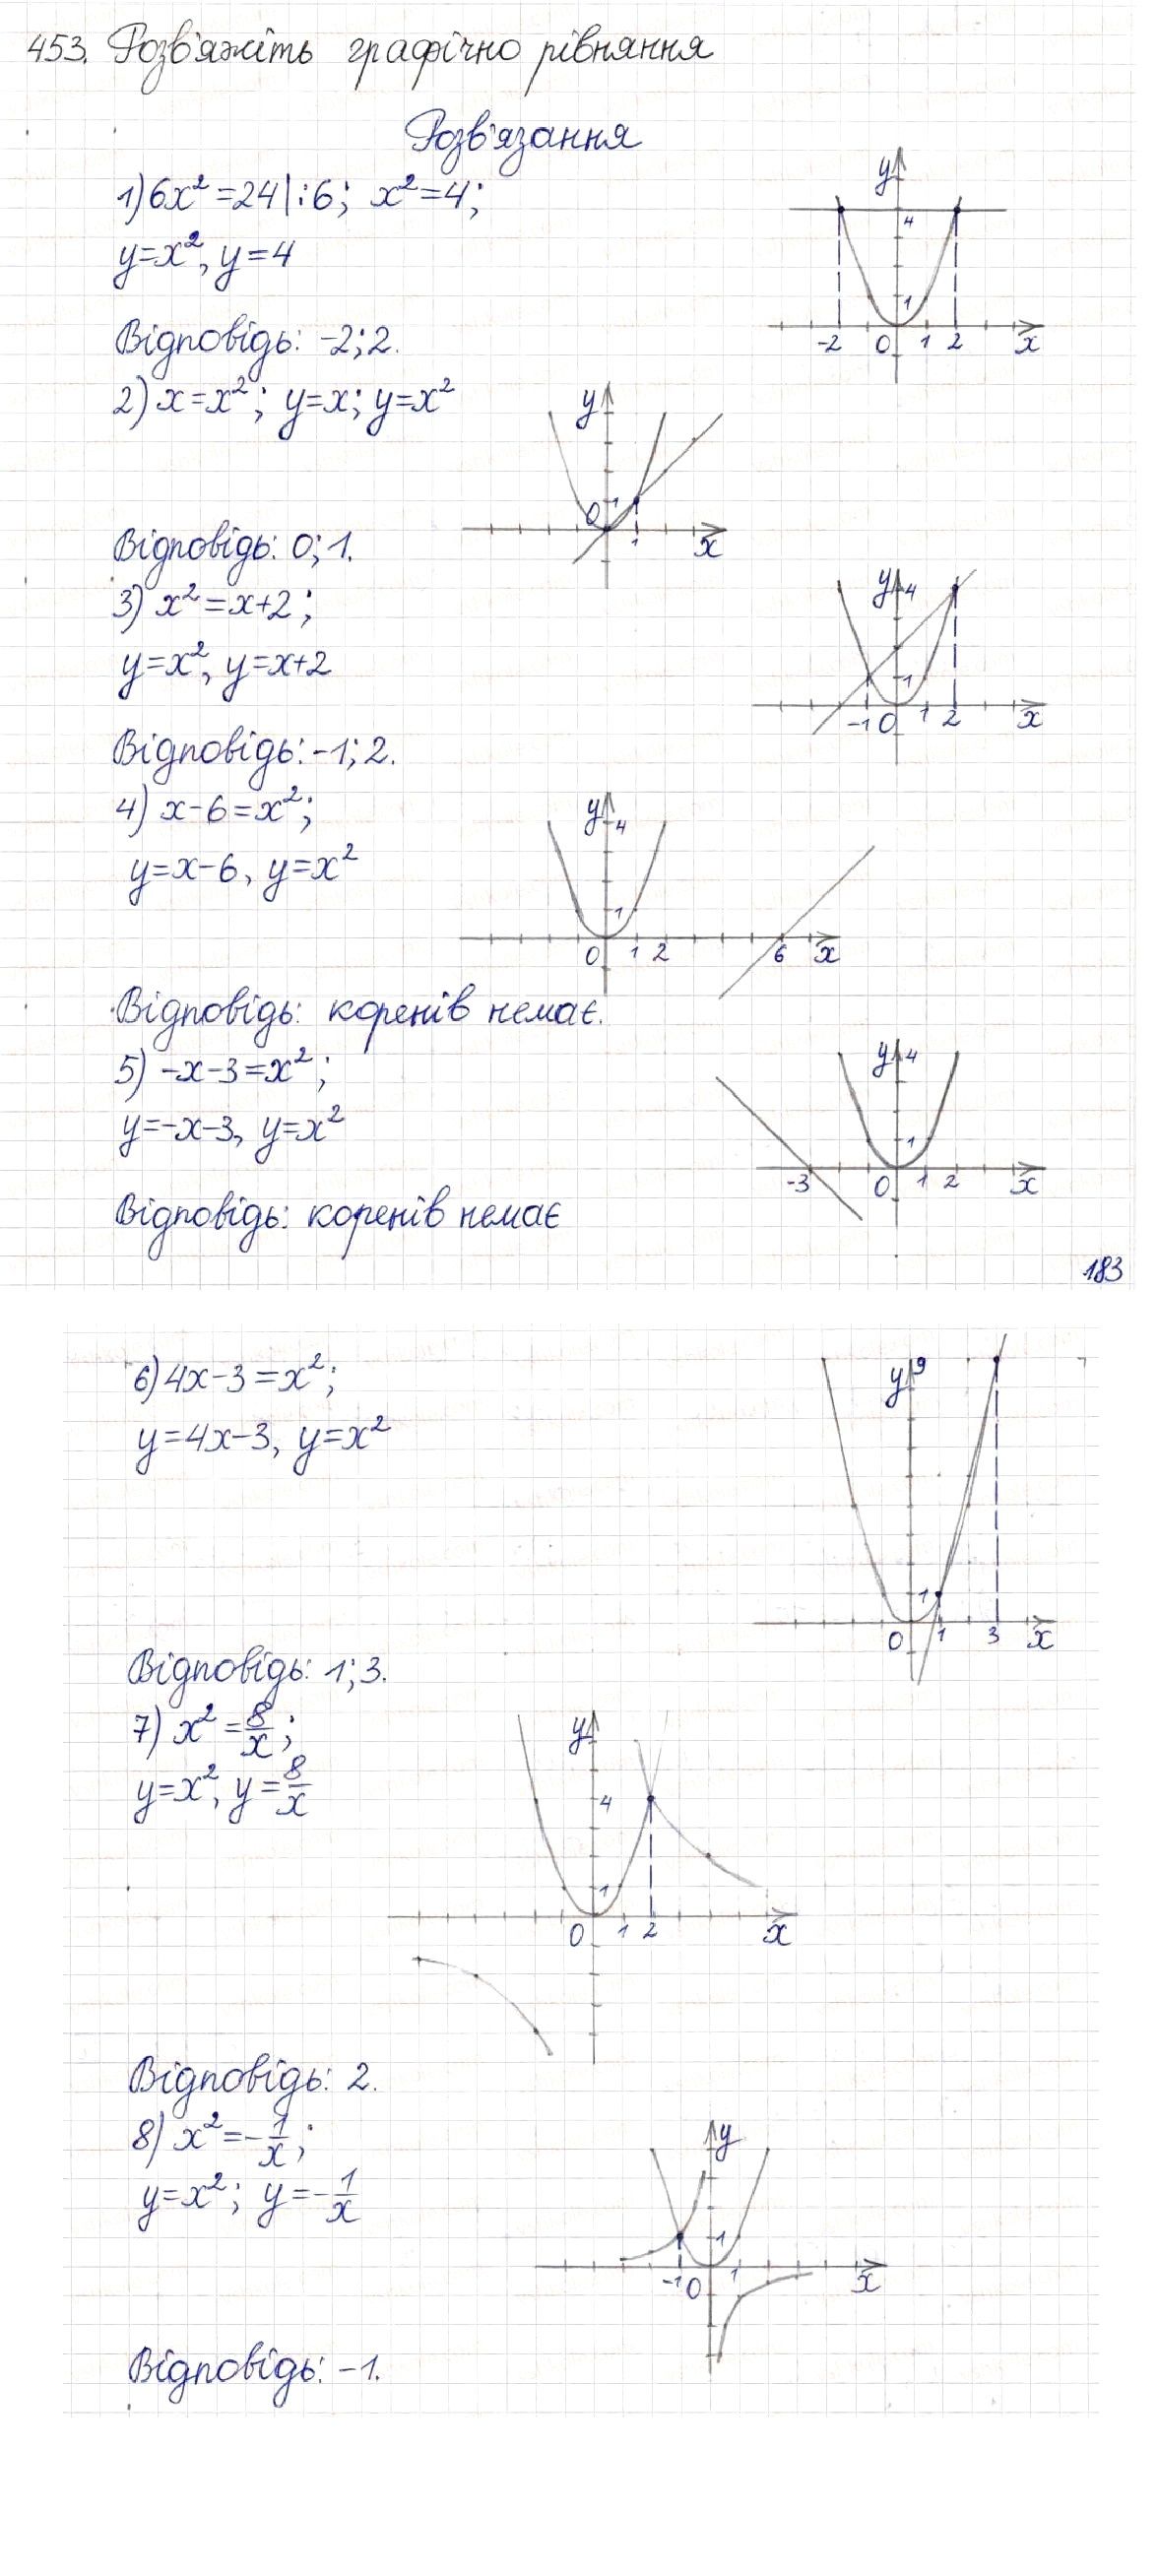 453. Розв'яжіть графічно рівняння
Розв'язання
1) 6x² = 24 | : 6; x² = 4;
y = x², y = 4
y
4
1
-2 0 1 2 x
Відповідь: -2; 2.
2) x = x²; y = x; y = x²
y
0 1
1 x
Відповідь: 0; 1.
3) x² = x + 2;
y = x², y = x + 2
y 4
1
-1 0 1 2 x
Відповідь: -1; 2.
4) x - 6 = x²;
y = x - 6, y = x²
y 4
1
0 1 2 6 x
Відповідь: коренів немає.
5) -x - 3 = x²;
y = -x - 3, y = x²
y 4
1
-3 0 1 2 x
Відповідь: коренів немає
183
6) 4x - 3 = x²;
y = 4x - 3, y = x²
y 9
1
0 1 3 x
Відповідь: 1; 3.
7) x² = 8/x;
y = x², y = 8/x
y
4
1
0 1 2 x
Відповідь: 2.
8) x² = -1/x;
y = x²; y = -1/x
y
1
-1 0 1 x
Відповідь: -1.